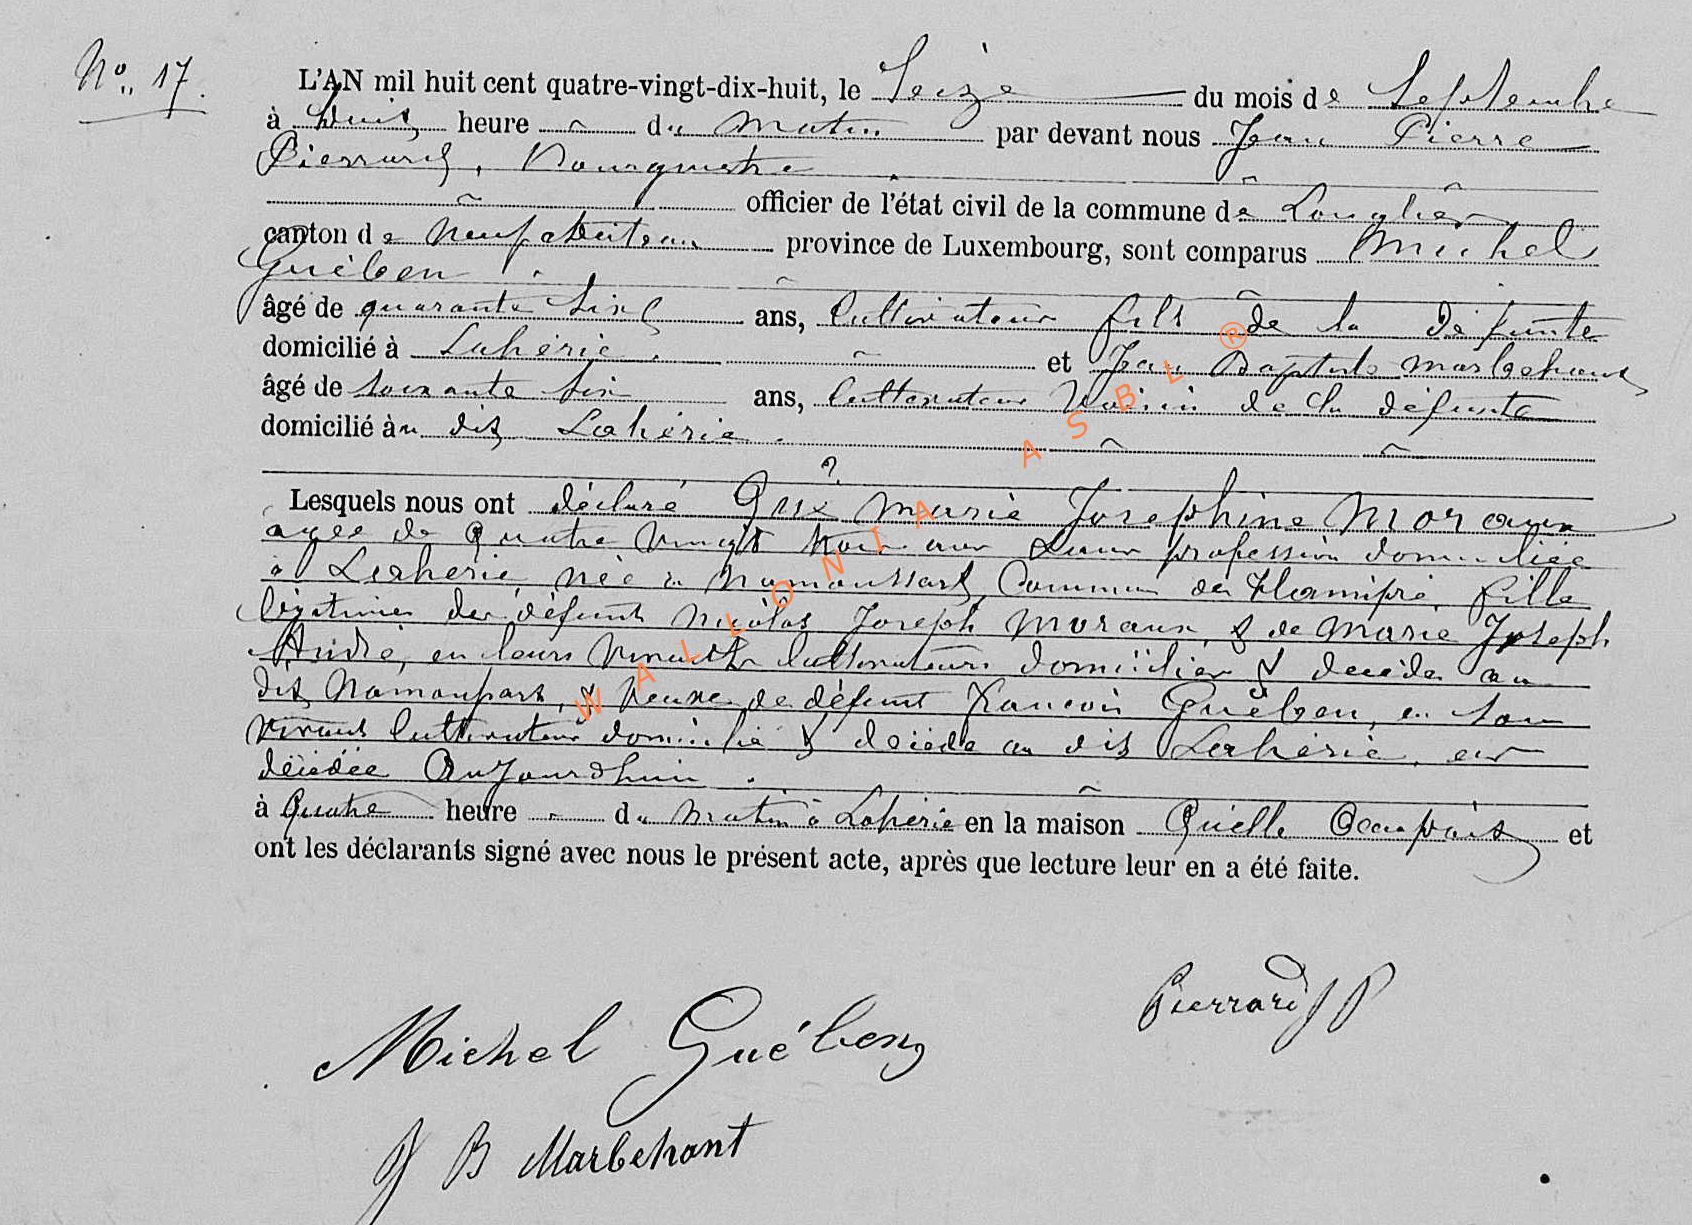 No 17.
L'AN mil huit cent quatre-vingt-dix-huit, le Seize du mois de Septembre
à huit heure du matin par devant nous Jean Pierre
Pierrard, Bourgmestre
officier de l'état civil de la commune de Longlier
canton de Neufchâteau province de Luxembourg, sont comparus Michel
Guèben
âgé de quarante six ans, Cultivateur fils de la défunte
domicilié à Lahérie. et Jean Baptiste Marbehant
âgé de soixante six ans, Cultivateur Voisin de la défunte
domicilié au dit Lahérie.
Lesquels nous ont déclaré que Marie Josephine Moraux
agée de quatre vingt ans sans profession domiciliée
à Laherie, née à Namoussart, Commune de Hamipré, fille
légitime des défunts Nicolas Joseph Moraux, & de Marie Joseph
André, en leurs vivants Cultivateurs domiciliés & décédés au
dit Namoussart, & Veuve de défunt François Guèben, en son
vivant Cultivateur domicilié & décédé au dit Lahérie, est
décédée Aujourdhui
à quatre heure du matin à Lahérie en la maison Quelle Occupait et
ont les déclarants signé avec nous le présent acte, après que lecture leur en a été faite.
Pierrard J P
Michel Guében
J B Marbehant
WALLONIA ASBL ®